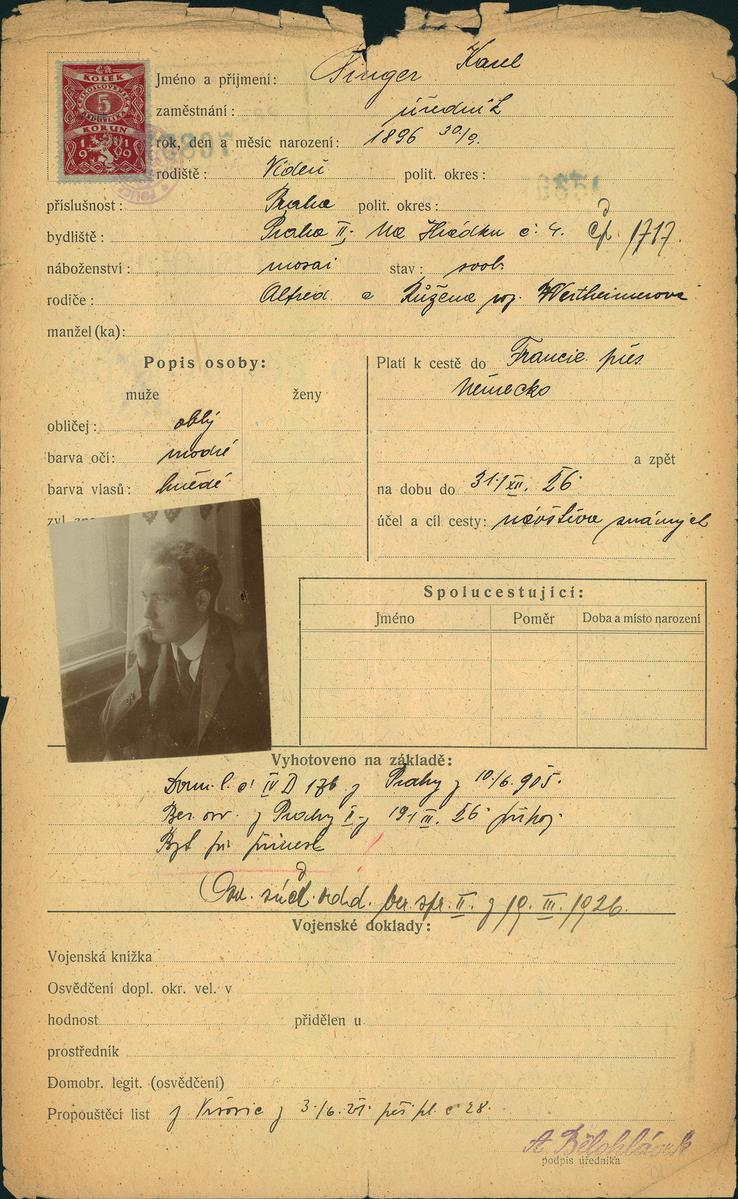 KOLEK
5
KORUN
1919
Jméno a příjmení: Singer Karel
zaměstnání: úředník
rok, den a měsíc narození: 1896 30/9.
rodiště: Vídeň polit. okres:
příslušnost: Praha polit. okres:
bydliště: Praha II, Na Hrádku č. 4. čp. 1717.
náboženství: mosai stav: svob.
rodiče: Alfred a Růžena roz. Wertheimerová
manžel(ka):
Popis osoby:
muže ženy
obličej: oblý
barva očí: modré
barva vlasů: hnědé
Platí k cestě do Francie přes
Německo
a zpět
na dobu do 31/XII. 26
účel a cíl cesty: návštěva známých
Spolucestující:
Jméno Poměr Doba a místo narození
Vyhotoveno na základě:
Dom. l. č. IV D 176 z Prahy z 10/6. 905.
Ber. z Prahy II z 19/III. 26
Byt
ber. spr. II. z 19. III. 1926.
Vojenské doklady:
Vojenská knížka
Osvědčení dopl. okr. vel. v
hodnost přidělen u
prostředník
Domobr. legit. (osvědčení)
Propouštěcí list z z 3/6. 21. č 28.
A. Bělohlávek
podpis úředníka